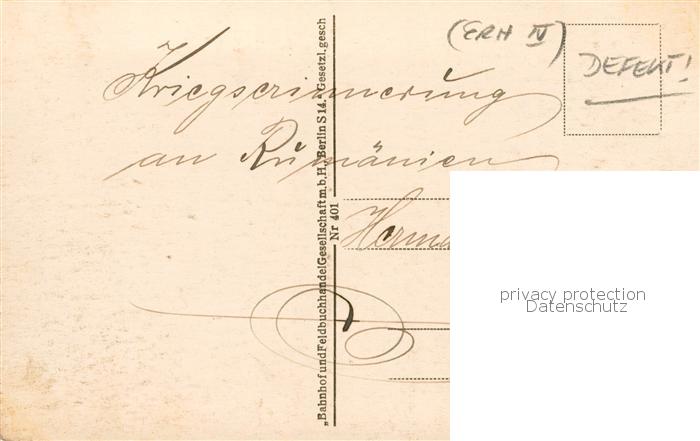 (ERH IV)
DEFEKT!
Kriegserinnerung
an Rumänien
Herma
„Bahnhof und Feldbuchhandel Gesellschaft m.b.H." Berlin S 14. Gesetzl. gesch
Nr 401
privacy protection
Datenschutz